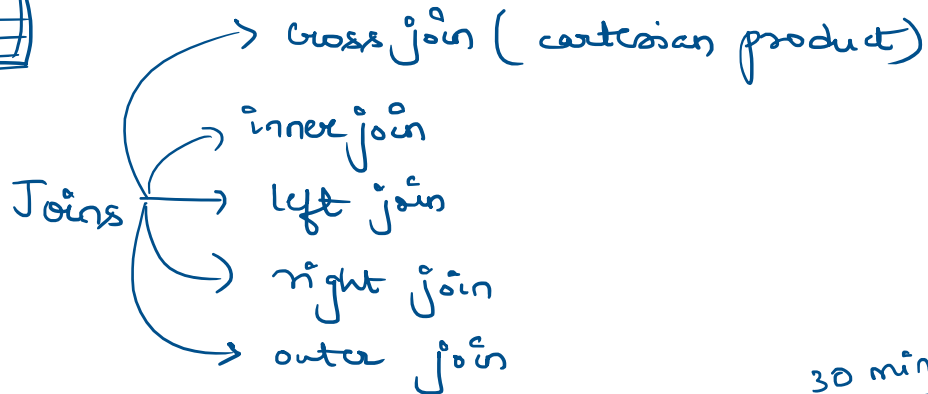 cross join ( cartesian product )
inner join
left join
Joins
right join
outer join
30 min